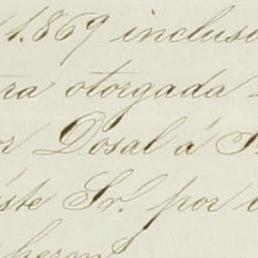 1.869 inclusi
ra otorgada
or Dosal á
este Sr. por